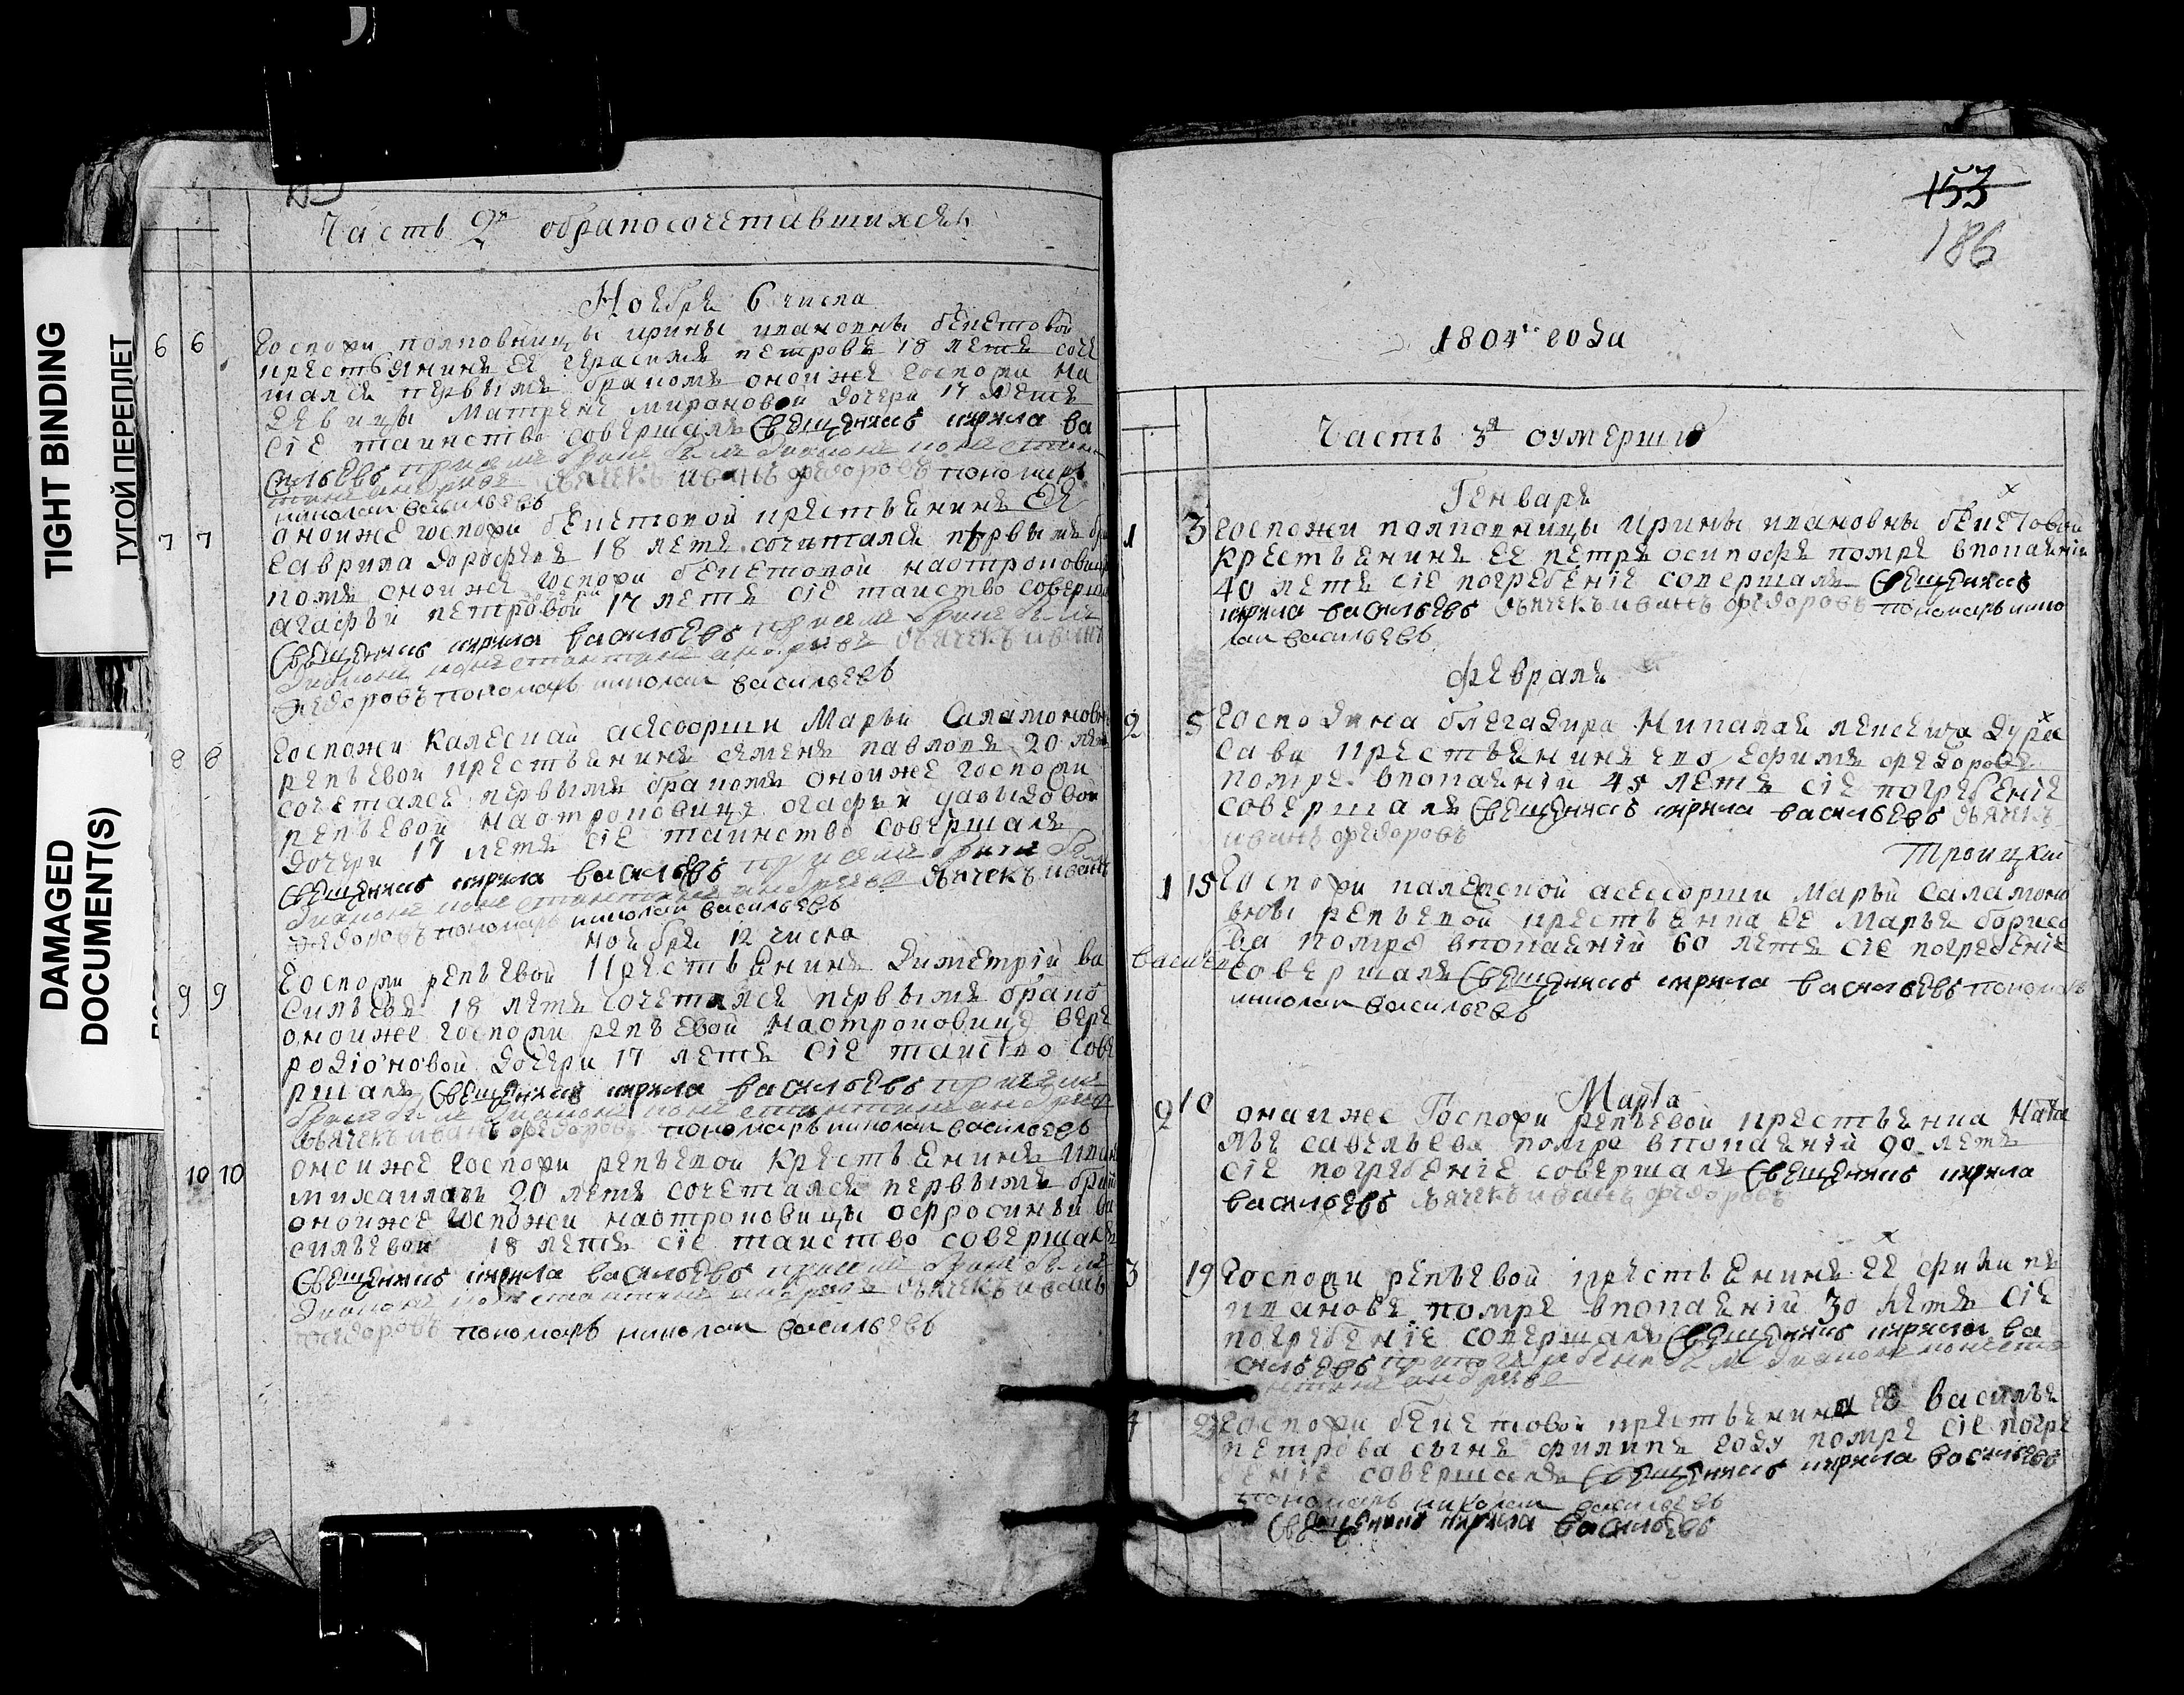 TIGHT BINDING
ТУГОЙ ПЕРЕПЛЕТ
DAMAGED
DOCUMENT(S)
Часть 2я обракосочетавшихся
Ноября 6 числа
6 6 Госпожи полковницы ирины ивановны бекетовой
крестьянинъ ее герасимъ петровъ 18 летъ соче
тался первымъ бракомъ оной же госпожи на
девицы Матрене мироновой дочери 17 летъ
сіе таинство совершалъ Священникъ кирила ва
сильевъ при семъ браке былъ диаконъ констан
тинъ андреевъ дьячекъ иванъ федоровъ пономарь
николаи васильевъ
7 7 оной же госпожи бекетовой крестьянинъ ее
гаврила дорофеевъ 18 летъ сочетался первымъ бра
комъ оной же госпожи бекетовой наотроковице
агафьи петровой дочери 17 летъ сіе таиство соверш
Священникъ кирила васильевъ при семъ браке былъ
диаконъ константинъ андреевъ дьячекъ иванъ
федоровъ пономарь николаи васильевъ
8 8 Госпожи Калескай асессорши Марьи Саламоновны
репьевой крестьянинъ семенъ павловъ 20 летъ
сочетался первымъ бракомъ оной же госпожи
репьевой наотроковице агафьи давыдовой
дочери 17 летъ сіе таинство совершалъ
Священникъ кирила васильевъ при семъ браке былъ
диаконъ константинъ андреевъ дьячекъ иванъ
федоровъ пономарь николаи васильевъ
ноября 12 числа
9 9 Госпожи репьевой крестьянинъ Димитрій ва
сильевъ 18 летъ сочетался первымъ брако
оной же госпожи репьевой наотроковице вере
родіоновой дочери 17 летъ сіе таиство сове
ршалъ Священникъ кирила васильевъ при семъ
браке былъ диаконъ константинъ андреевъ
дьячекъ иванъ федоровъ пономарь николаи васильевъ
10 10 оной же госпожи репьевой крестьянинъ иван
михаиловъ 20 летъ сочетался первымъ брак
оной же госпожи наотроковицы ефросиньи ва
сильевой 18 летъ сіе таиство совершалъ
Священникъ кирила васильевъ при семъ браке былъ
диаконъ константинъ андреевъ дьячекъ иванъ
федоровъ пономарь николаи васильевъ
153
186
1804го года
Часть 3я оумершихъ
Генваря
1 3 Госпожи полковницы Ирины ивановны бекетовой
крестьянинъ ее петръ осиповъ помре впокаяніи
40 летъ сіе погребеніе совершалъ Священникъ
кирила васильевъ дьячекъ иванъ федоровъ пономарь нико
лаи васильевъ
февраля
2 5 Господина брегадира Николая алексеича Дура
сова крестьянинъ его ефимъ федоровъ
помре впокаяніи 45 летъ сіе погребеніе
совершалъ Священникъ кирила васильевъ дьячекъ
иванъ федоровъ
Троицкий
1 15 Госпожи калежской асессорши Марьи саламоно
вны репьевой крестьянка ее Марья борисо
ва помре впокаяніи 60 летъ сіе погребеніе
совершалъ Священникъ кирила васильевъ пономарь
николаи васильевъ
Марта
2 10 онай же Госпожи репьевой крестьянка ната
лья савельева помре впокаяніи 90 летъ
сіе погребеніе совершалъ Священникъ кирила
васильевъ дьячекъ иванъ федоровъ
3 19 Госпожи репьевой крестьянинъ ее филипъ
ивановъ помре впокаяніи 30 летъ сіе
погребеніе совершалъ Священникъ кирила ва
сильевъ при погребении былъ диаконъ конста
нтинъ андреевъ
4 Госпожи бекетовой крестьянина ее василья
петрова сынъ филипъ году помре сіе погре
беніе совершалъ Священникъ кирила васильевъ
пономарь николаи васильевъ
Священникъ кирила васильевъ